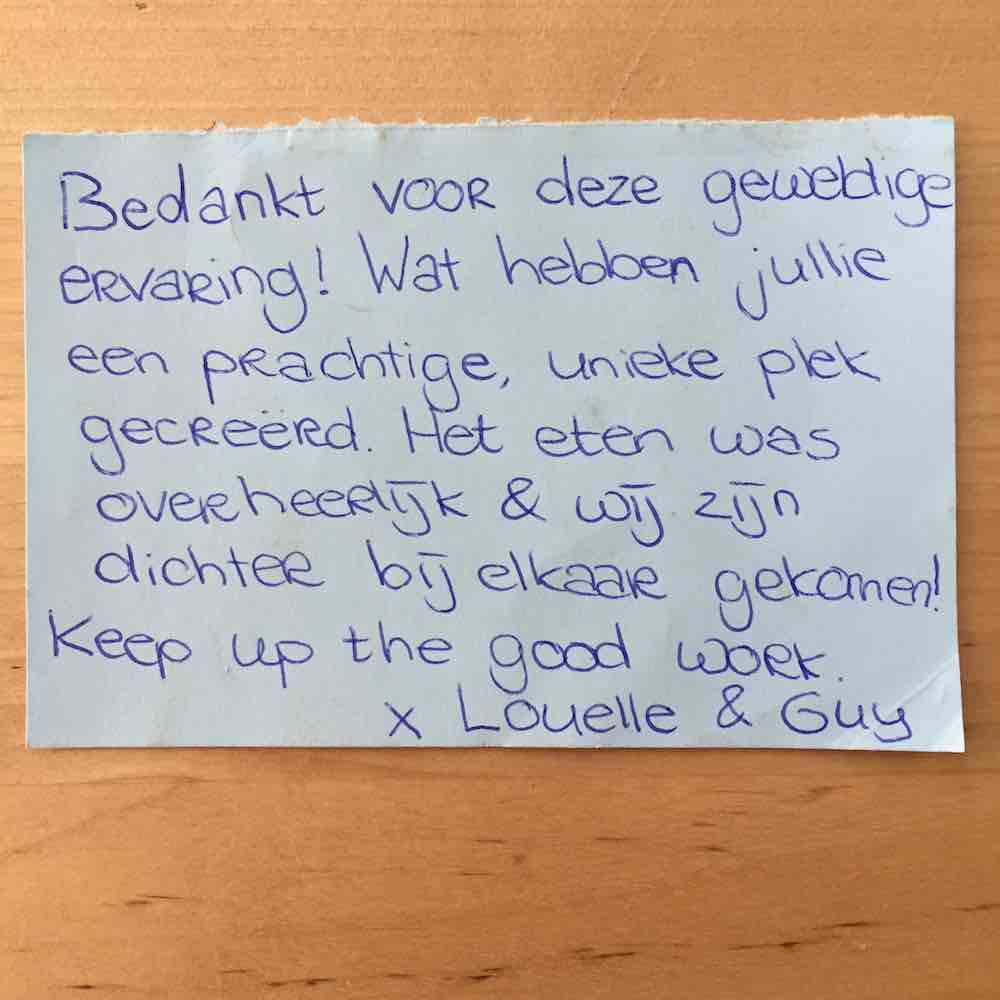 Bedankt voor deze geweldige
ervaring! Wat hebben jullie
een prachtige, unieke plek
gecreëerd. Het eten was
overheerlijk & wij zijn
dichter bij elkaar gekomen!
Keep up the good work.
x Louelle & Guy